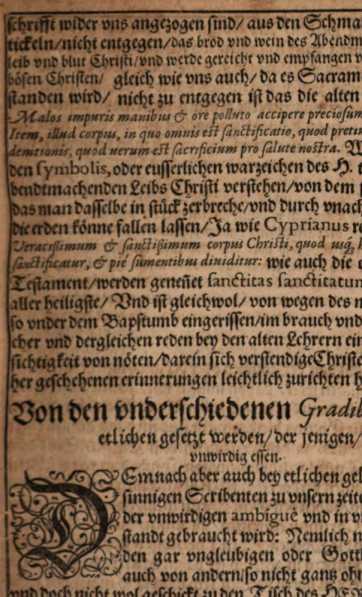 schrifft wider vns angezogen sind/ aus den Schma
tickeln/nicht entgegen/das brod vnd wein des Abendm
leib vnd blut Christi/vnd werde gereicht vnd empfangen v
bösen Christen/ gleich wie vns auch/ da es Sacram
standen wird/ nicht zu entgegen ist das die alten
Malos impuris manibus & ore polluto accipere preciosum
Item, illud corpus, in quo omnis est sanctificatio, quod pretiu
demtionis, quod uerum est sacrificium pro salute nostra.
den symbolis, oder eusserlichen warzeichen des H.
bendtmachenden Leibs Christi verstehen/von dem
das man dasselbe in stück zerbreche/vnd durch vnach
die erden könne fallen lassen/Ja wie Cyprianus re
Veracissimum & sanctissimum corpus Christi, quod
sanctificatur, & pie sumentibus diuiditur: wie auch die
Testament/werden genenet sanctitas sanctitatum
aller heiligste/ Vnd ist gleichwol/ von wegen des m
so vnder dem Bapstumb eingerissen/im brauch vnd
cher vnd dergleichen reden bey den alten Lehrern ein
sichtigkeit von nöten/darein sich verstendige Christe
her geschehenen erinnerungen leichtlich zurichten
Von den vnderschiedenen Gradib
etlichen gesetzt werden/ der jenigen/
vnwirdig essen.
DEmnach aber auch bey etlichen gel
sinnigen Scribenten zu vnsern zeit
der vnwirdigen ambiguè vnd in v
standt gebraucht wird: Nemlich
den gar vngleubigen oder Gott
auch von andern/so nicht gantz oh
vnd doch nicht wol geschickt zu den Tisch des